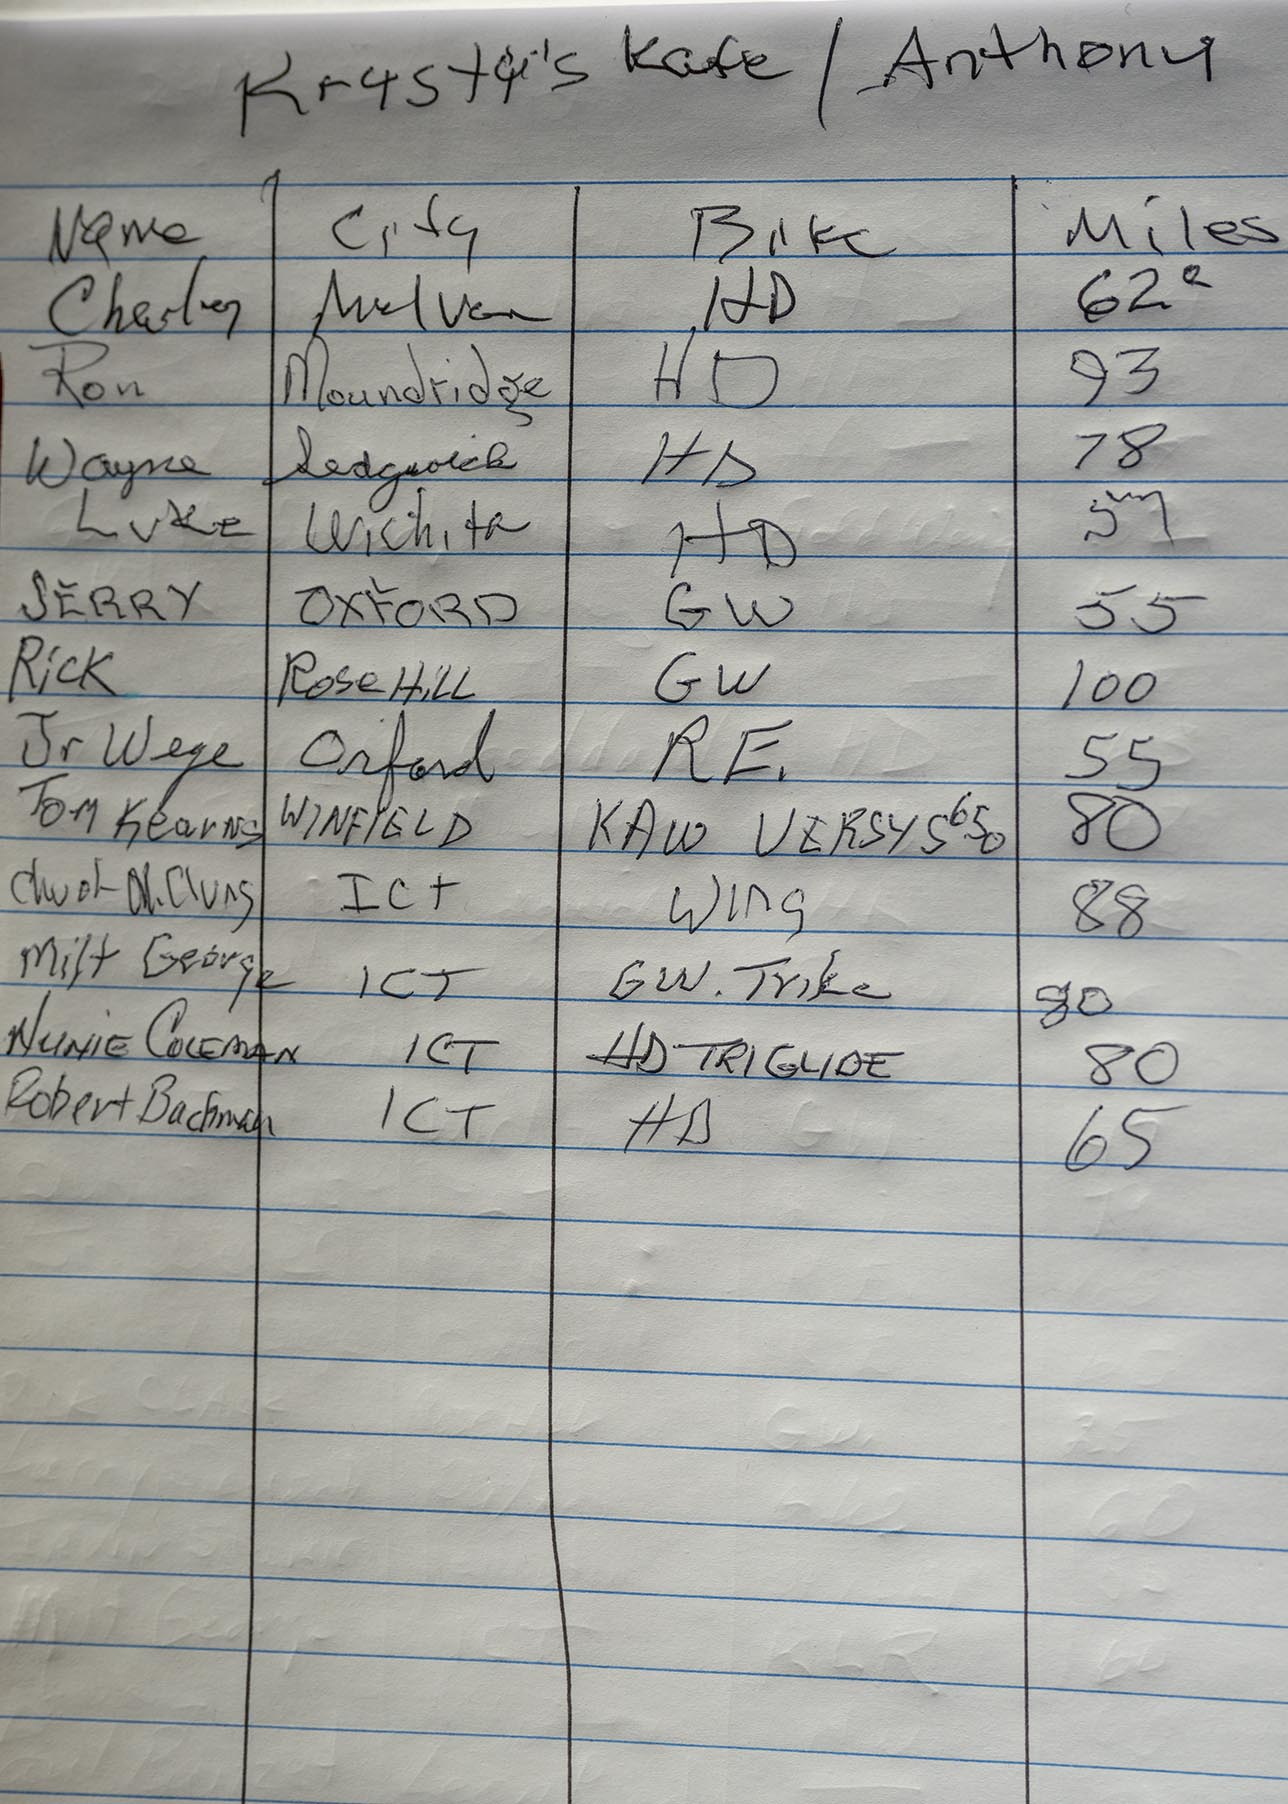 Krysty's Kafe / Anthony
Name City Bike Miles
Charley Mulvan HD 62
Ron Moundridge HD 93
Wayne Sedgwick HD 78
Luke Wichita HD
JERRY OXFORD GW 55
Rick Rose Hill GW 100
Jr Wege Oxford R.E. 55
Tom Kearns WINFIELD KAW VERSYS 650 80
ICT Wing 88
Milt George ICT GW. Trike 80
NUNIE COLEMAN ICT HD TRIGLIDE 80
Robert Bachman ICT HD 65